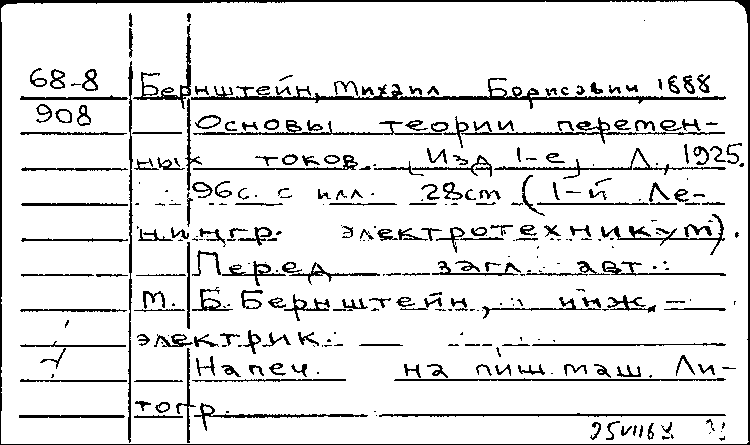 68-8 Бернштейн, Михаил Борисович, 1888
908 Основы теории перемен-
ных токов. [Изд 1-е]. Л., 1925.
96с. с илл. 28cm (1-й Ле-
нингр. электротехникум).
Перед загл. авт.:
М. Б. Бернштейн, инж.-
электрик.
Напеч. на пиш. маш. Ли-
тогр.